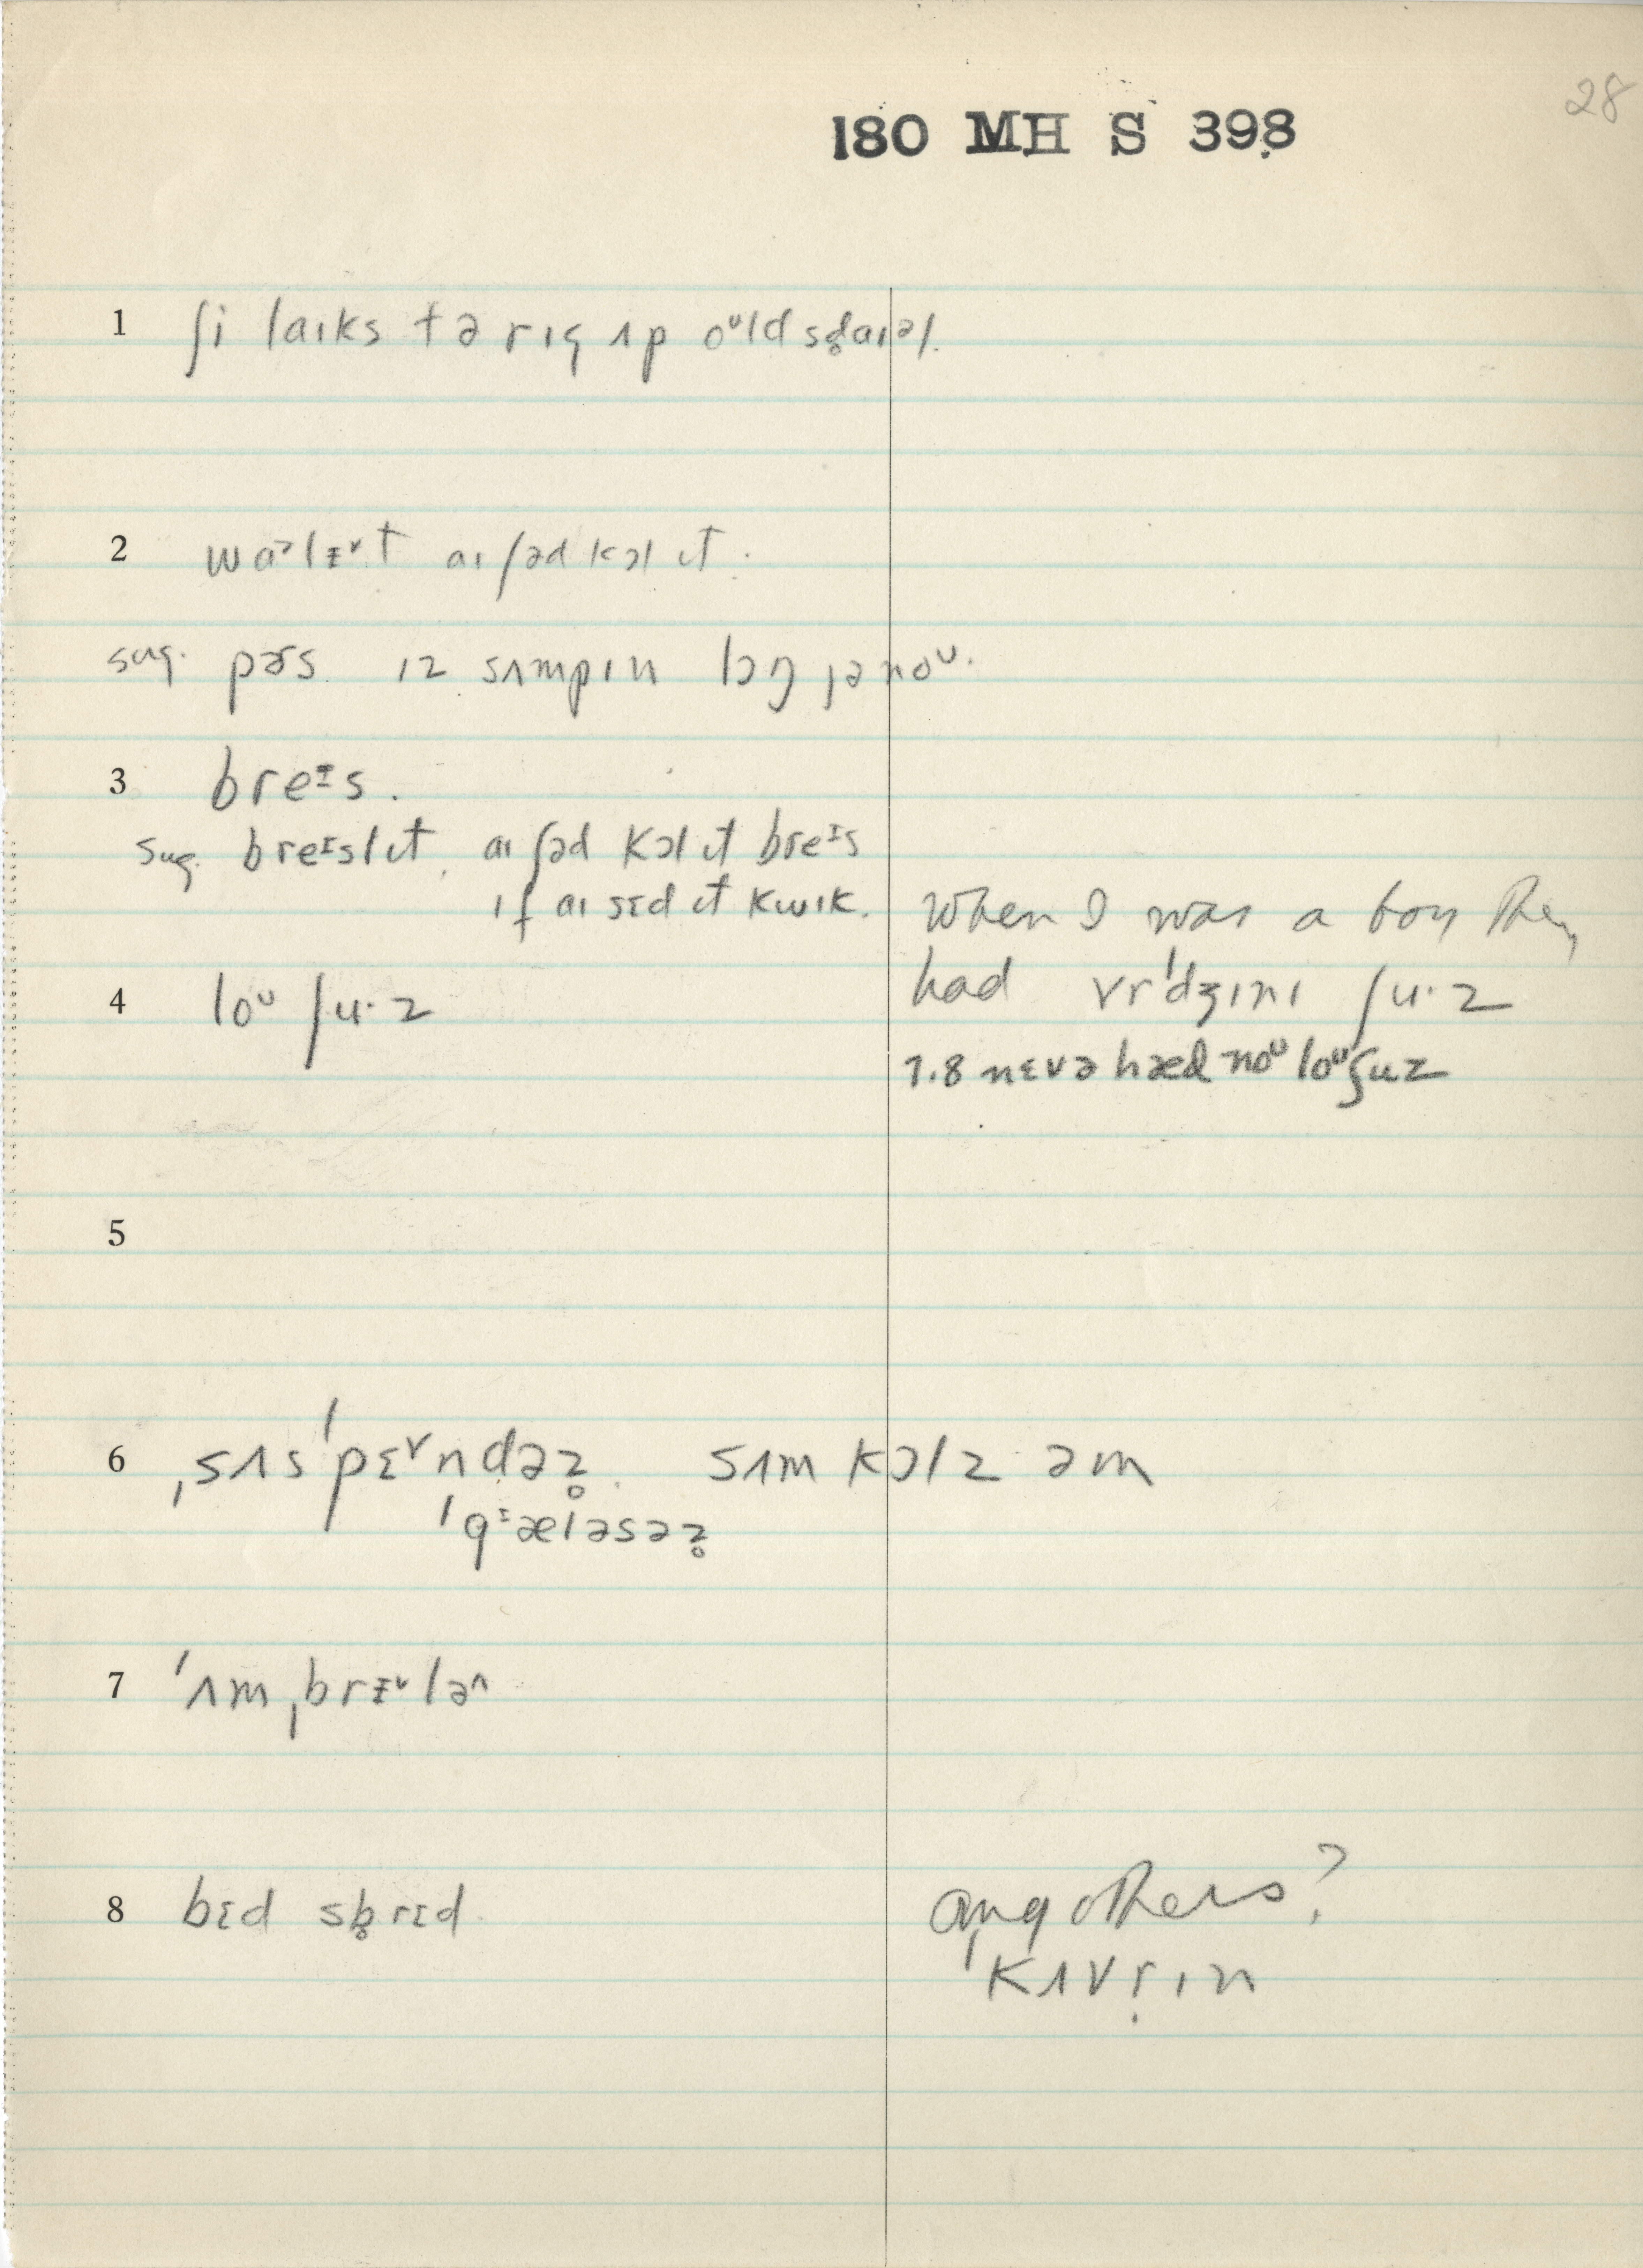 28
180 MH S 398
1 ʃi laɪks tə rɪg ʌp oᶷld sd̥aɪəl.
2 wɑᵊlɪ̵ᵛt aɪ ʃəd kɔl ɪt.
sug. pɜs. ɪz sʌmpɪn lɔŋ jə noᶷ.
3 breᶦs.
sug. breᶦslɪt. aɪ ʃəd kɔl ɪt breᶦs
ɪf aɪ sɛd ɪt kwɪk.
When I was a boy they
4 loᶷ ʃu·z
had vr'dʒɪnɪ ʃu·z
7.8 nɛvə hæd noᶷ loᶷ ʃuz
5
6 ˌsʌs'pɛᵛndəz̥. sʌm kɔlz əm
'gᶦæləsəz̥
7 'ʌmˌbrɪ̵ᵛləᶺ
8 bɛd sb̥rɛd.
any others?
'kʌvṛɪn